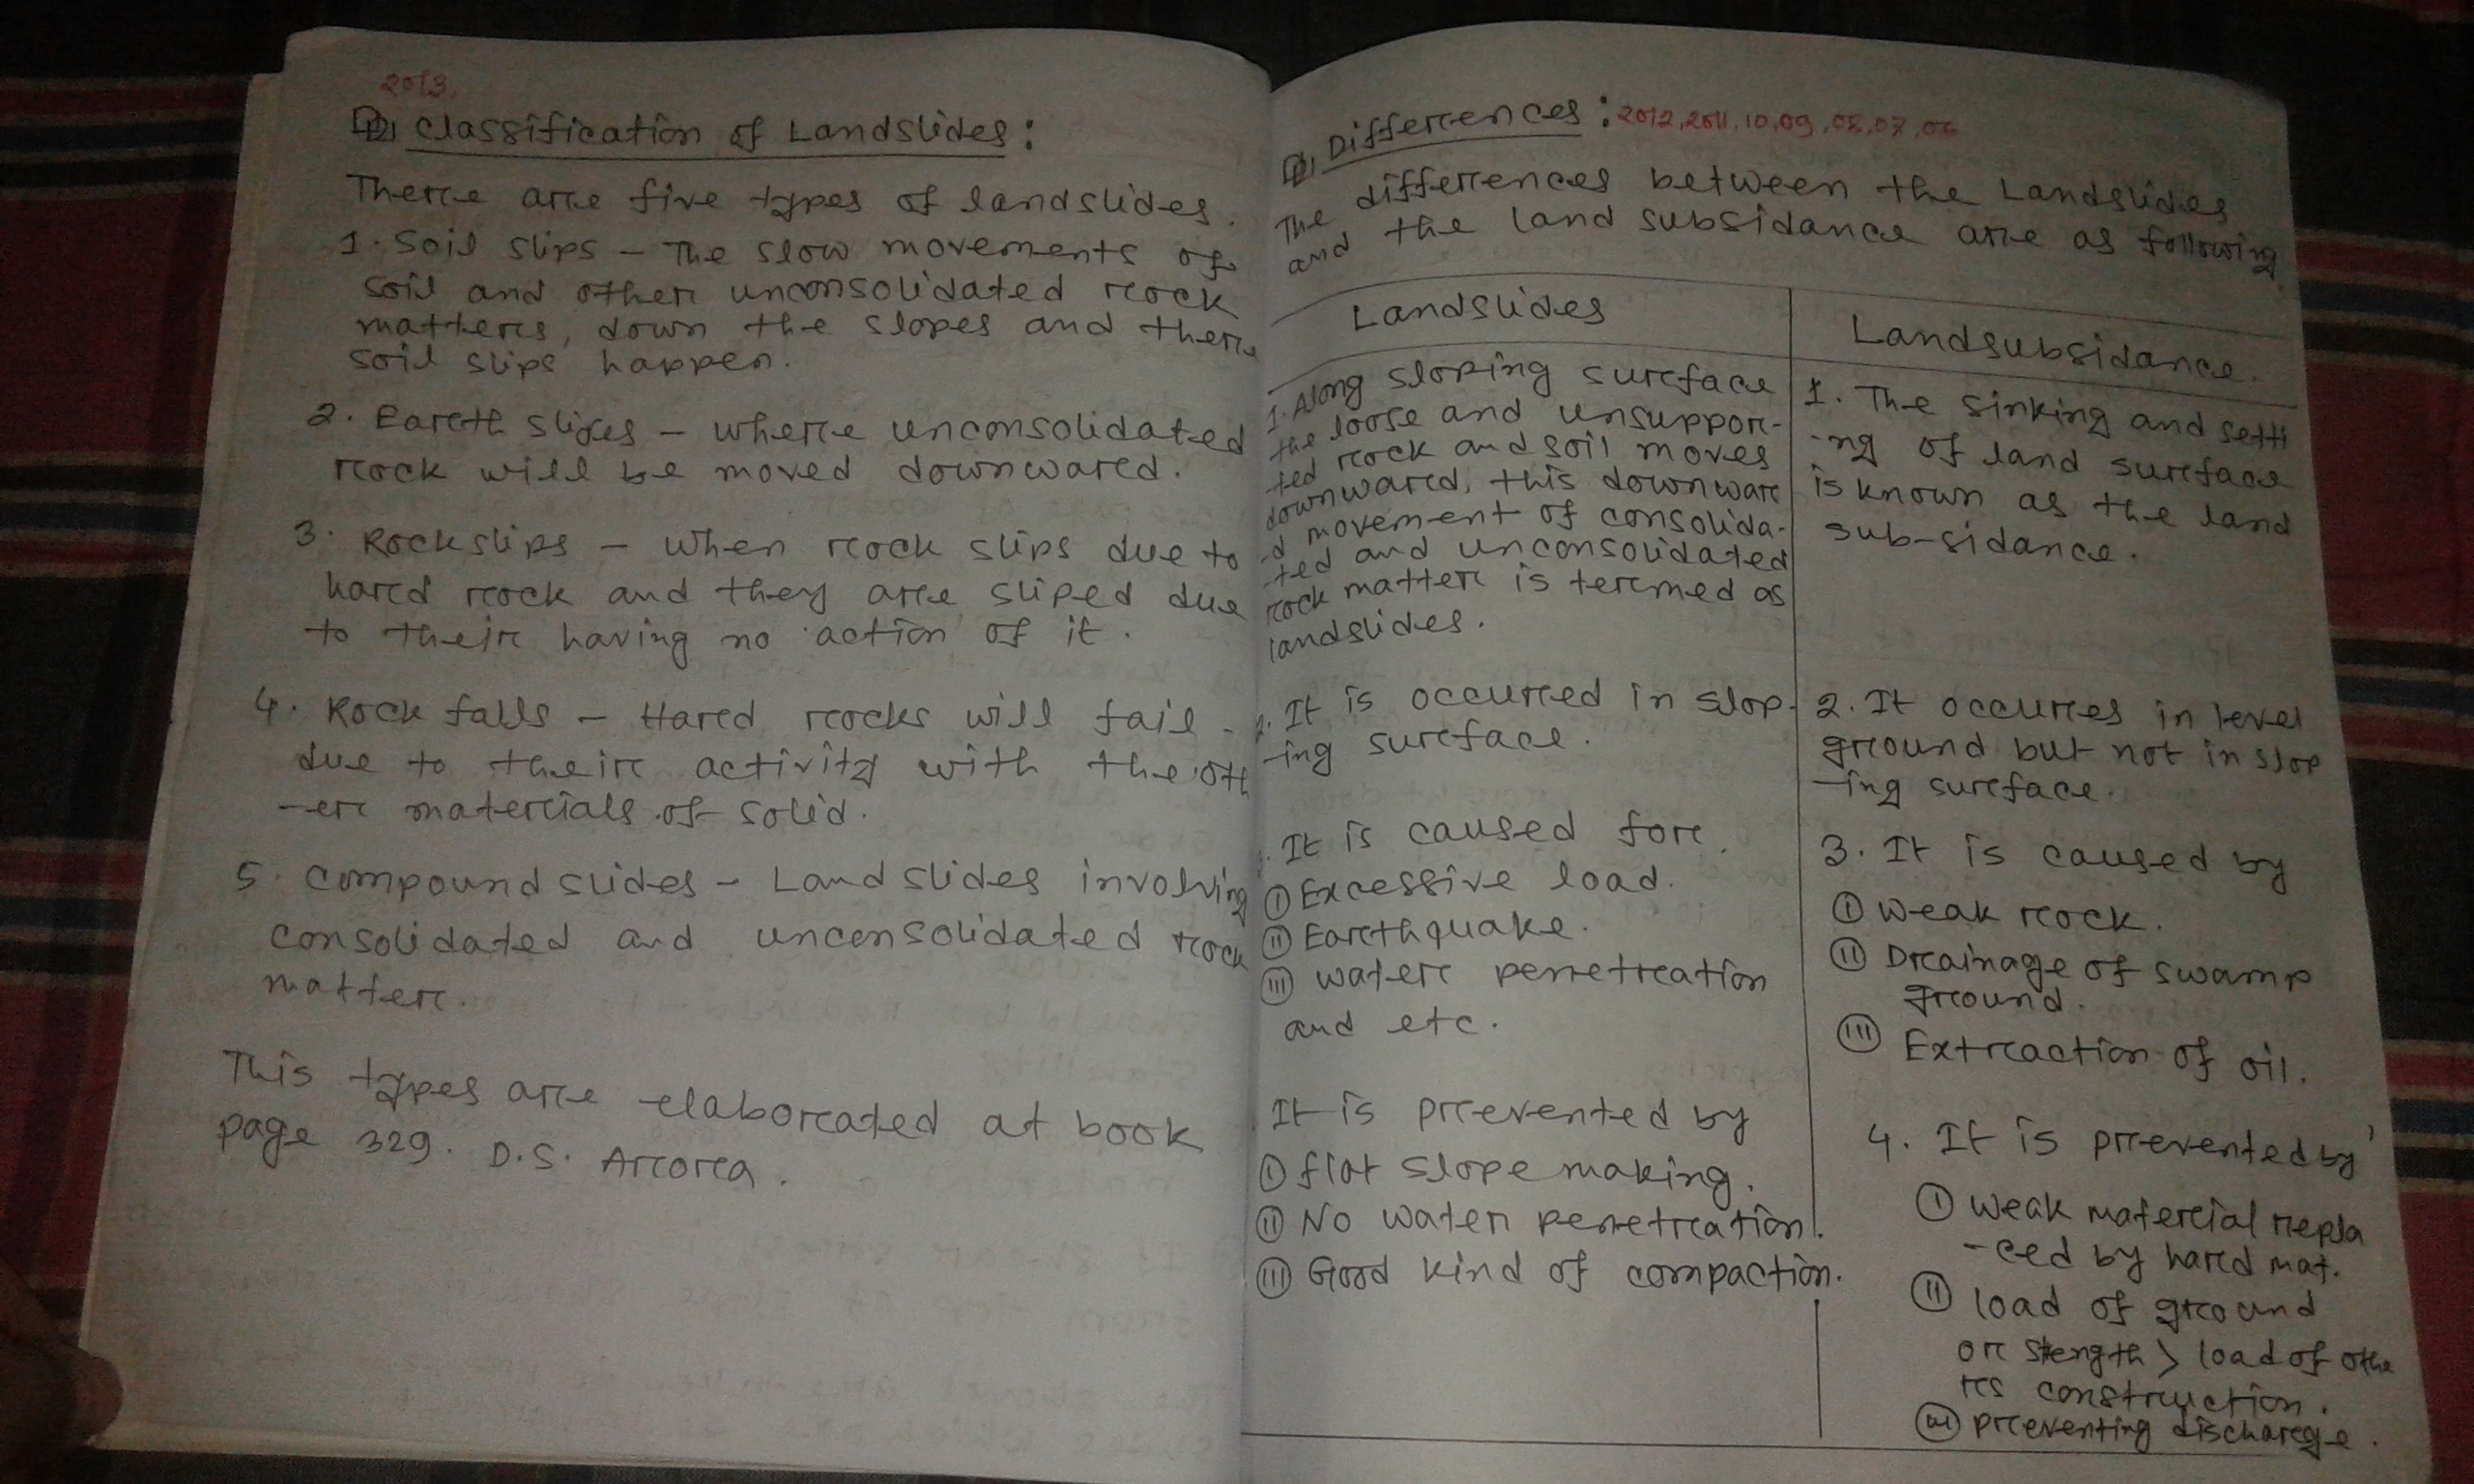 2013.
Q, Classification of Landslides:
There are five types of landslides.
1. Soil slips - The slow movements of
soil and other unconsolidated rock
matters, down the slopes and there
soil slips happen.
2. Earth slides - where unconsolidated
rock will be moved downward.
3. Rock slips - when rock slips due to
hard rock and they are sliped due
to their having no action of it.
4. Rock falls - Hard rocks will fail
due to their activity with the oth
-er materials of solid.
5. Compound slides - Landslides involving
consolidated and unconsolidated rock
matter.
This types are elaborated at book
page 329. D.S. Arora.
Q, Differences: 2012, 2011, 10, 09, 08, 07, 06
The differences between the Landslides
and the land subsidance are as following
Landslides
1. Along sloping surface
the loose and unsuppor-
ted rock and soil moves
downward, this downwar
d movement of consolida-
ted and unconsolidated
rock matter is termed as
landslides.
2. It is occurred in slop-
-ing surface.
It is caused for.
(i) Excessive load.
(ii) Earthquake.
(iii) water penetration
and etc.
It is prevented by
(i) flat slope making.
(ii) No water penetration.
(iii) Good kind of compaction.
Landsubsidance.
1. The sinking and setti
-ng of land surface
is known as the land
sub-sidance.
2. It occurres in level
ground but not in slop
-ing surface.
3. It is caused by
(i) weak rock.
(ii) Drainage of swamp
ground.
(iii) Extraction of oil.
4. It is prevented by
(i) weak material repla
-ced by hard mat.
(ii) load of ground
or stength > load of othe
rs construction.
(iii) preventing discharge.